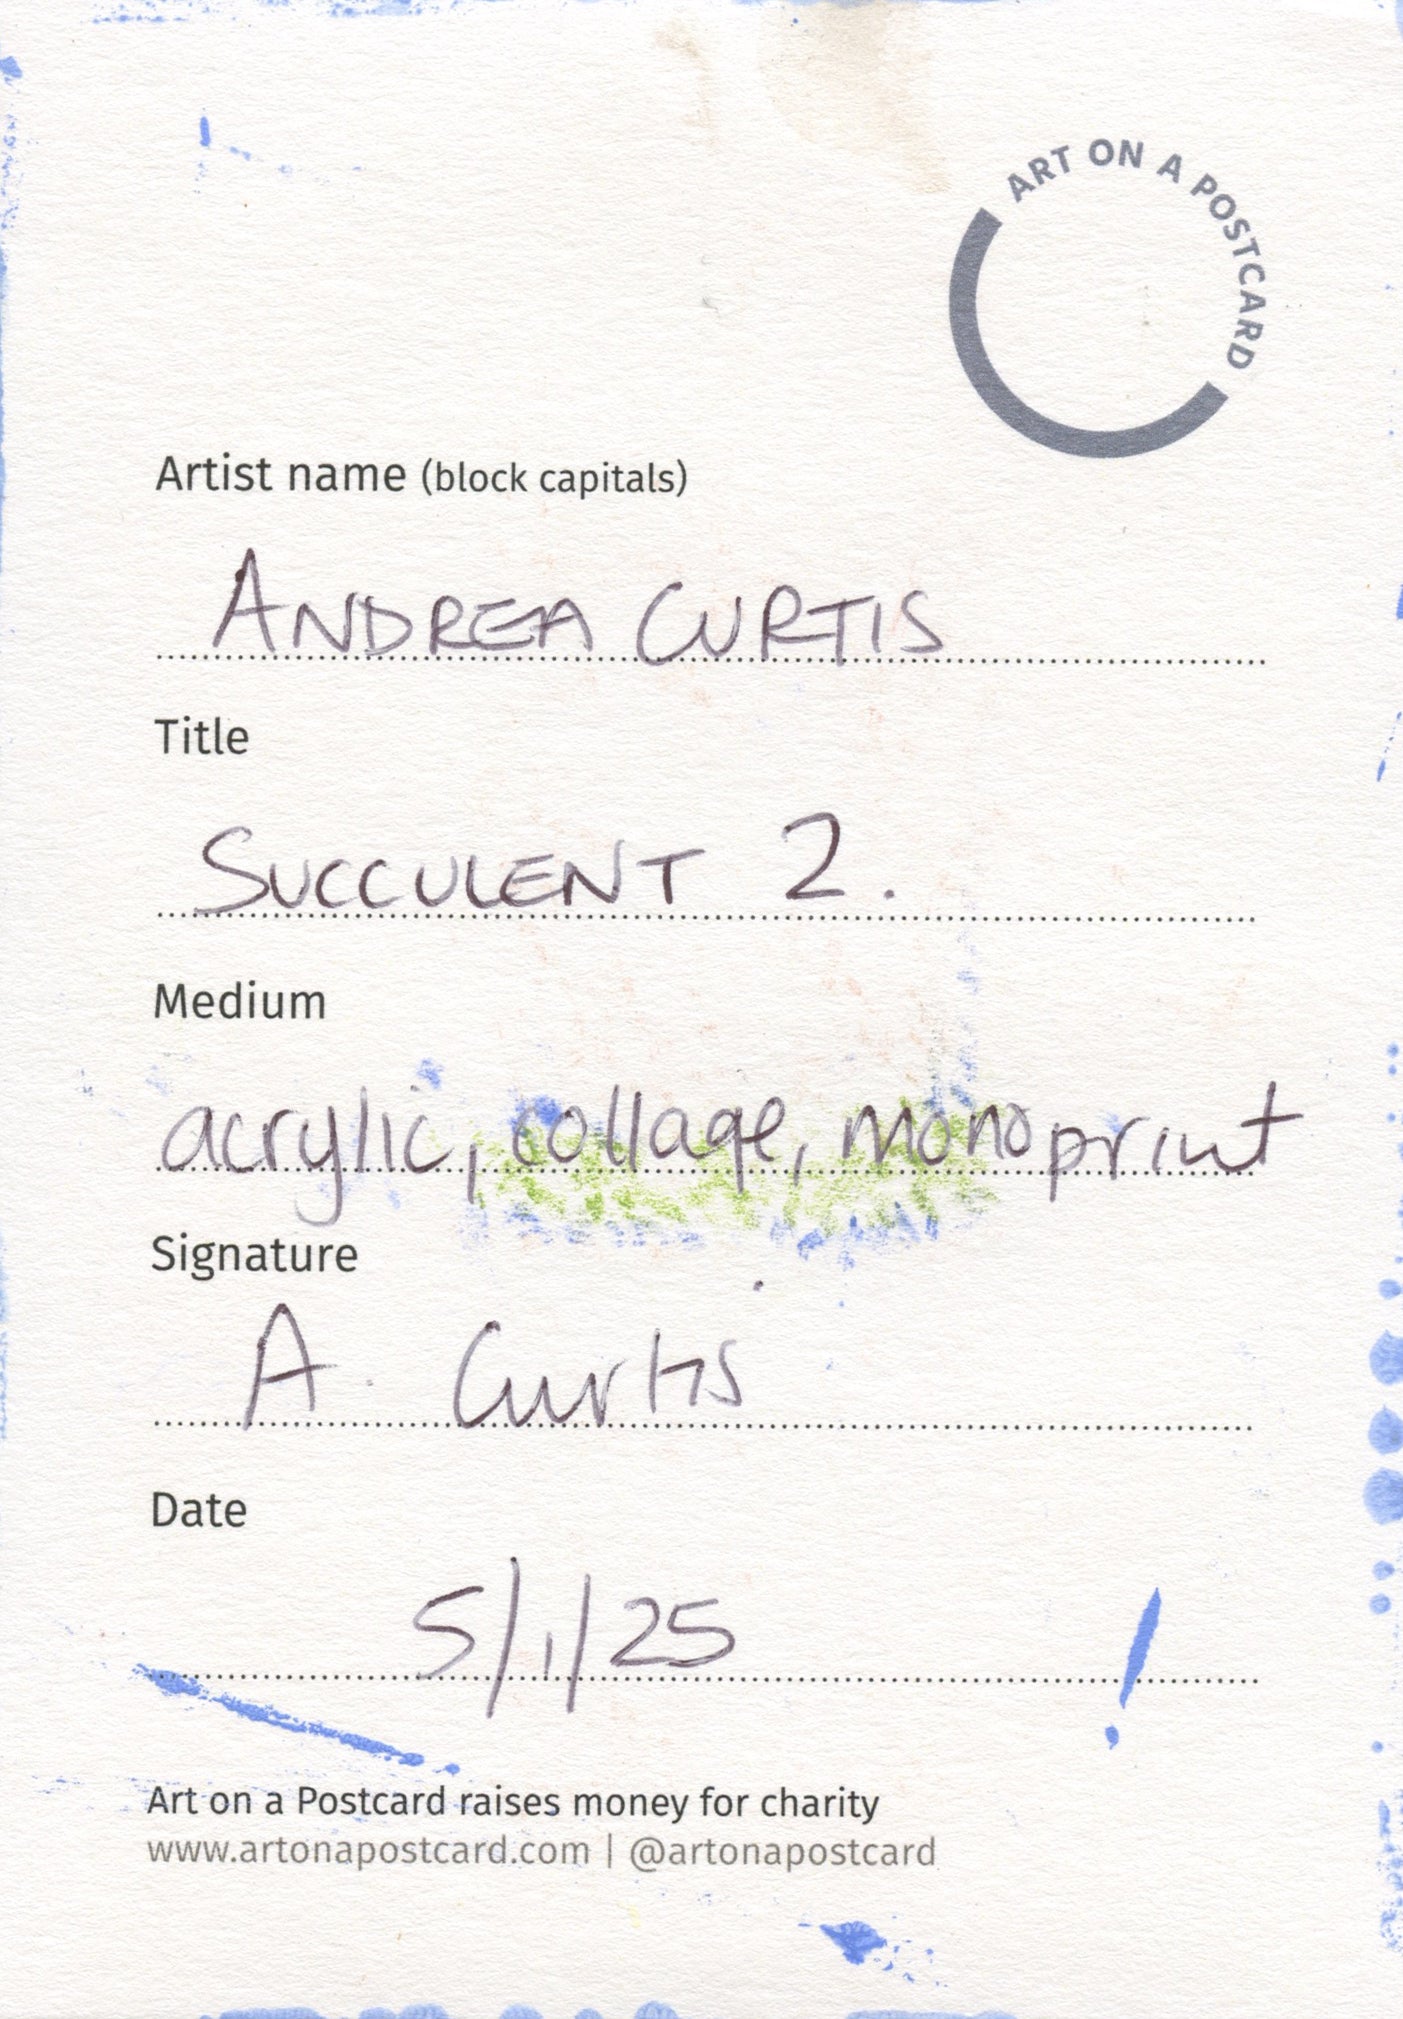 ART ON A POSTCARD
Artist name (block capitals)
ANDREA CURTIS
Title
SUCCULENT 2.
Medium
acrylic, collage, monoprint
Signature
A Curtis
Date
5/1/25
Art on a Postcard raises money for charity
www.artonapostcard.com | @artonapostcard